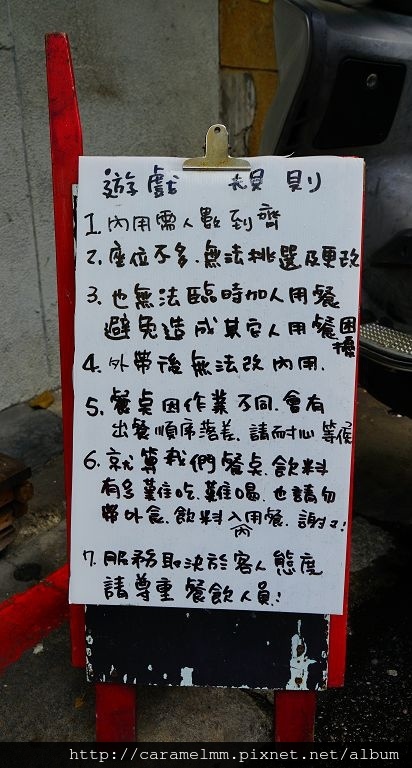 遊戲 規則
1. 內用需人數到齊
2. 座位不多.無法挑選及更改
3. 也無法臨時加人用餐
避免造成其它人用餐困擾
4. 外帶後無法改內用.
5. 餐桌因作業不同.會有
出餐順序落差.請耐心等候
6. 就算我們餐桌.飲料
有多難吃.難喝.也請勿
帶外食.飲料入內用餐.謝了!
7. 服務取決於客人態度
請尊重餐飲人員!
http://caramelmm.pixnet.net/album